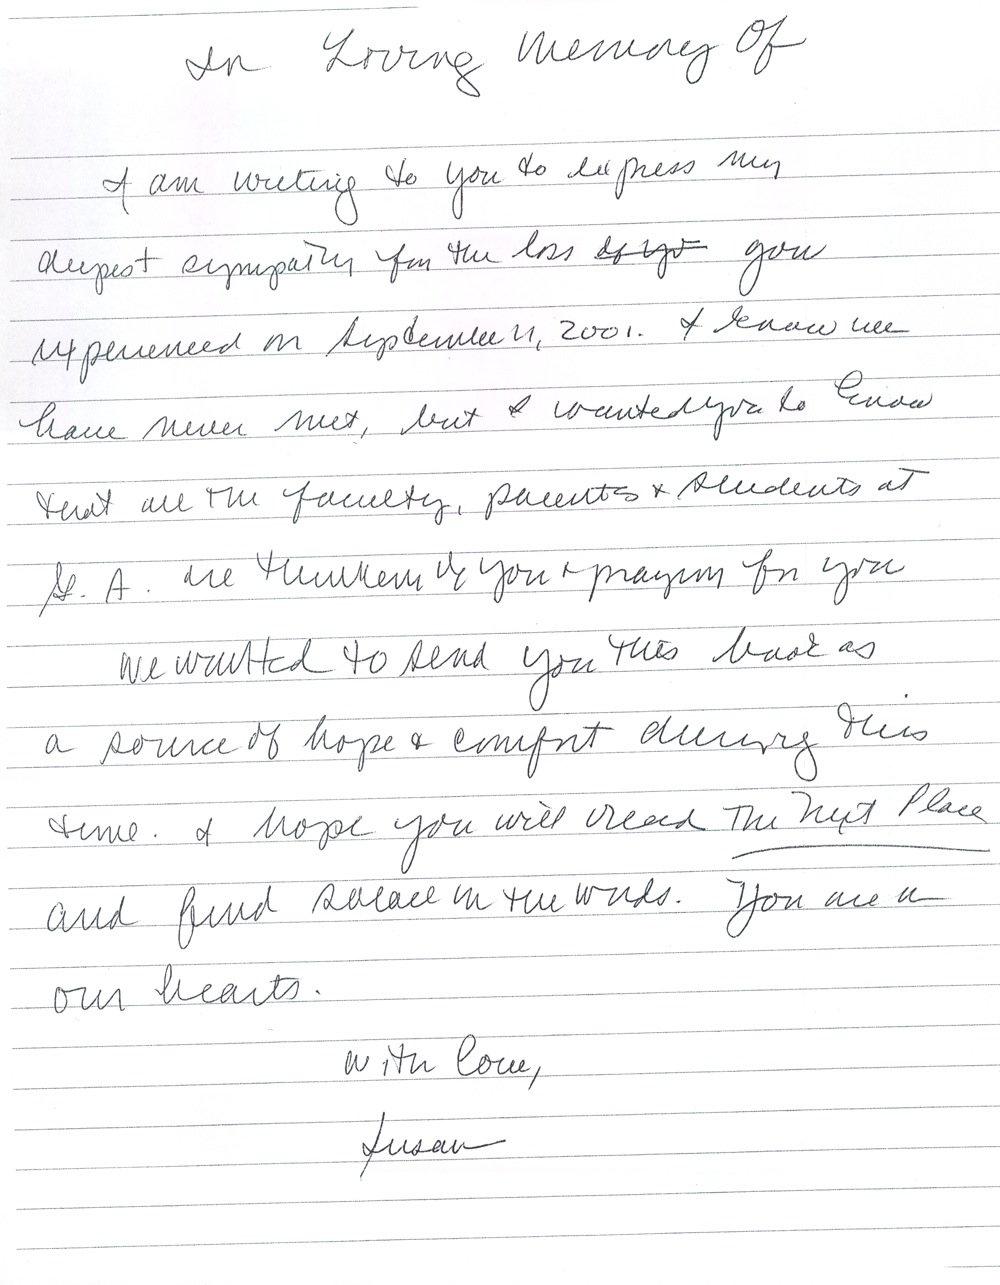 In Loving Memory Of
I am writing to you to express my
deepest sympathy for the loss of yo you
experienced on September 11, 2001. I know we
have never met, but I wanted you to know
that all the faculty, parents & students at
G. A. are thinking of you & praying for you
We wanted to send you this book as
a source of hope & comfort during this
time. I hope you will read The Next Place
and find solace in the words. You are in
our hearts.
With love,
Susan